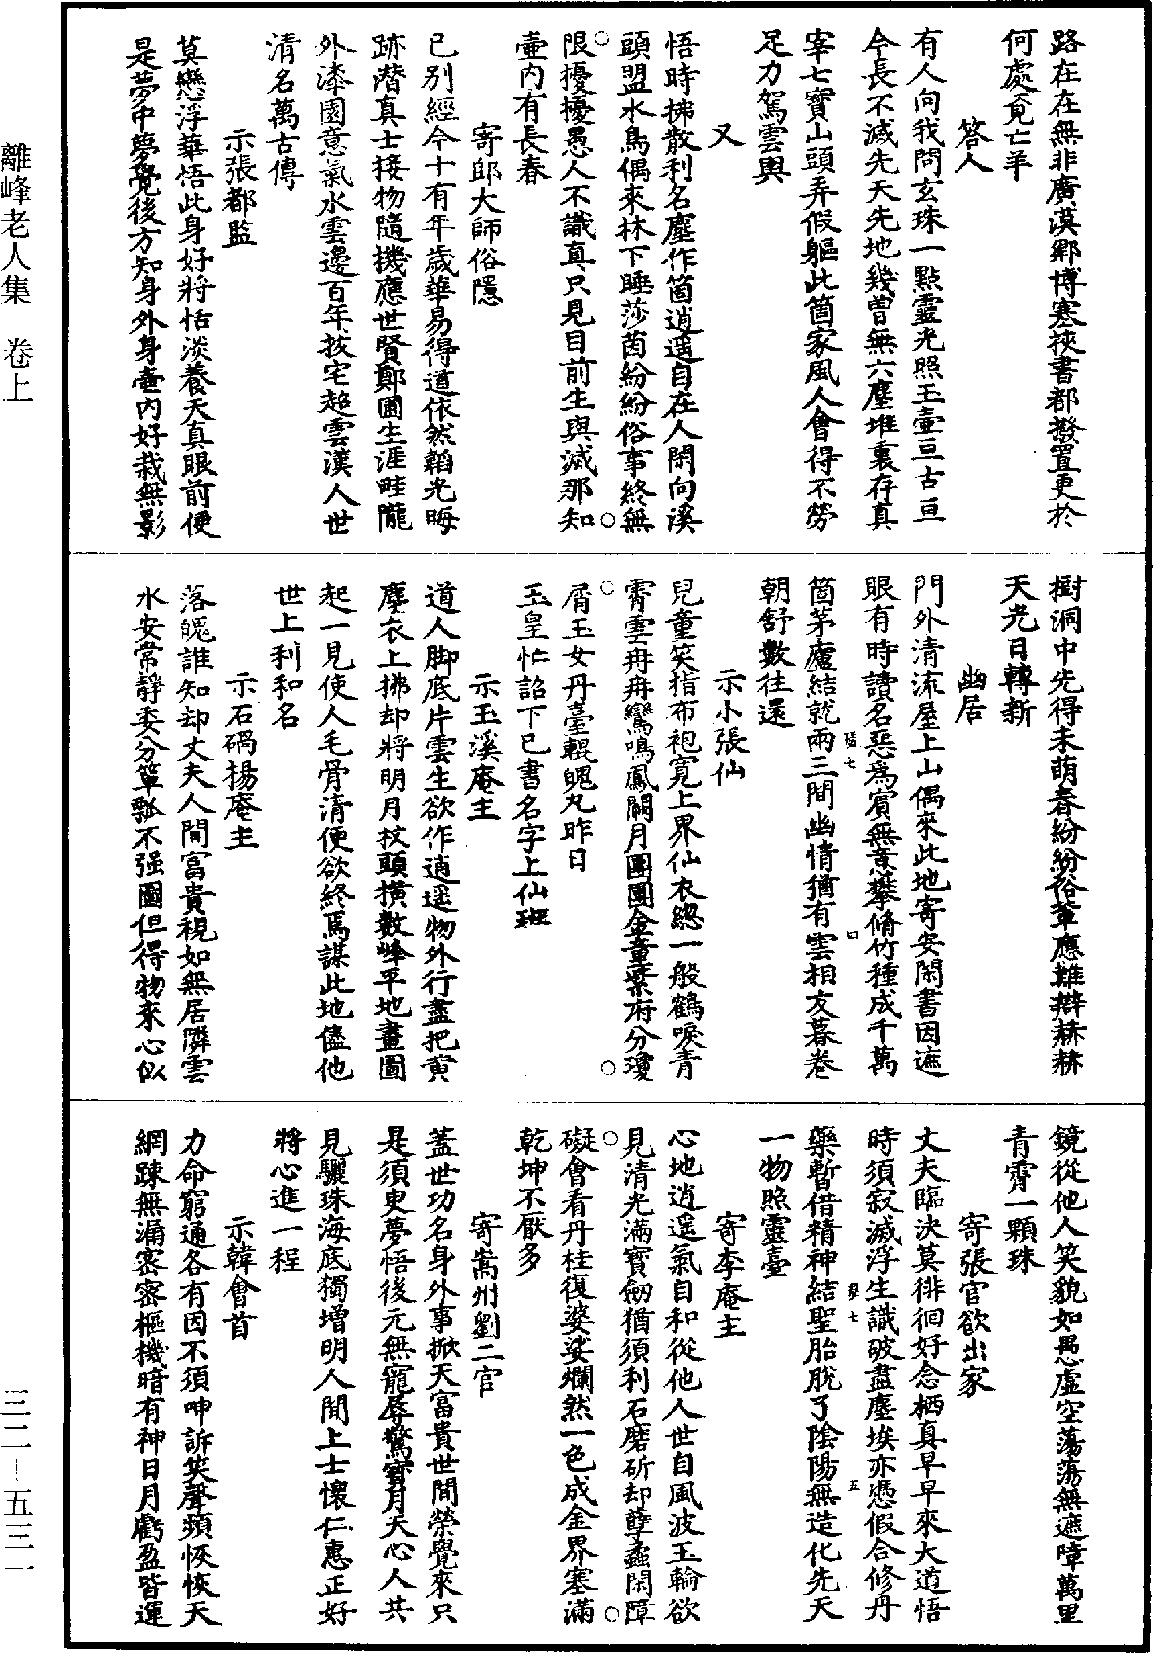 路在在無非廣漠鄉博塞挾書都撥置更於
何處覓亡羊
答人
有人向我問玄珠一點靈光照玉壺亘古亘
今長不滅先天先地幾曾無六塵堆裏存真
宰七寶山頭弄假軀此箇家風人會得不勞
足力駕雲輿
又
悟時拂散利名塵作箇逍遥自在人閑向溪
頭盟水鳥偶來林下睡莎茵紛紛俗事終無
限擾擾愚人不識真只見目前生與滅那知
壺内有長春
寄郎大師俗隱
已别經今十有年歲華易得道依然韜光晦
跡潜真士接物隨機應世賢鄭圃生涯畦隴
外漆園意氣水雲邊百年拔宅超雲漢人世
清名萬古傳
示張都監
莫戀浮華悟此身好將恬淡養天真眼前便
是夢中夢覺後方知身外身壺内好栽無影
樹洞中先得未萌春紛紛俗輩應難辯赫赫
天光日轉新
幽居
門外清流屋上山偶來此地寄安閑書因遮
眼有時讀名惡爲賓無意攀脩竹種成千萬
箇茅廬結就兩三間幽情猶有雲相友暮卷
朝舒數往還
示小張仙
兒童笑指布袍寬上界仙衣總一般鶴唳青
霄雲冉冉鸞鳴鳳闕月團團金童紫府分瓊
屑玉女丹臺輥魄丸昨日
玉皇忙詔下已書名字上仙班
示玉溪庵主
道人脚底片雲生欲作逍遥物外行盡把黄
塵衣上拂却將明月杖頭横數峰平地畫圖
起一見使人毛骨清便欲終焉謀此地儘他
世上利和名
示石碢揚庵主
落魄誰知却丈夫人間富貴視如無居隣雲
水安常靜委分簞瓢不强圖但得物來心似
鏡從他人笑貌如愚虛空蕩蕩無遮障萬里
青霄一顆珠
寄張官欲出家
丈夫臨決莫徘徊好念栖真早早來大道悟
時須寂滅浮生識破盡塵埃亦憑假合修丹
藥暫借精神結聖胎脱了陰陽無造化先天
一物照靈臺
寄李庵主
心地逍遥氣自和從他人世自風波玉輪欲
見清光滿寶劒猶須利石磨斫却孽蟊閑障
礙會看丹桂復婆娑爛然一色成金界塞滿
乾坤不厭多
寄嵩州劉二官
蓋世功名身外事掀天富貴世間榮覺來只
是須臾夢悟後元無寵辱驚寶月天心人共
見驪珠海底獨增明人間上士懷仁惠正好
將心進一程
示韓會首
力命窮通各有因不須呻訴笑聲頻恢恢天
網踈無漏密密樞機暗有神日月虧盈皆運
離峰老人集　卷上
三二－五三一